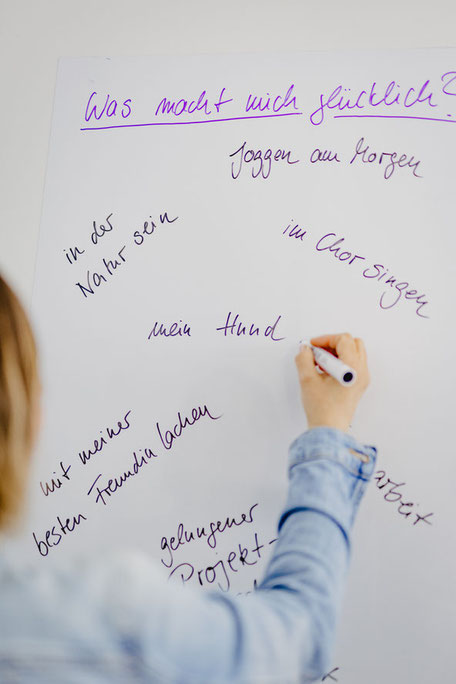 Was macht mich glücklich?
Joggen am Morgen
in der
Natur sein
im Chor singen
mein Hund
mit meiner
besten Freundin lachen
arbeit
gelungener
Projekt-